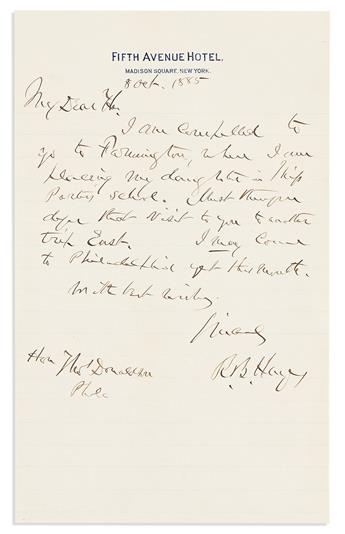 FIFTH AVENUE HOTEL,
MADISON SQUARE, NEW YORK.
8 Oct. 1885
My Dear
I am compelled to
go to Farmington, where I am
placing my daughter in Miss
Porters' school. Must therefore
defer that visit to you to another
trip East. I may come
to Philadelphia yet this month.
With best wishes,
Sincerely
R. B. Hayes
Hon Thos Donaldson
Phila